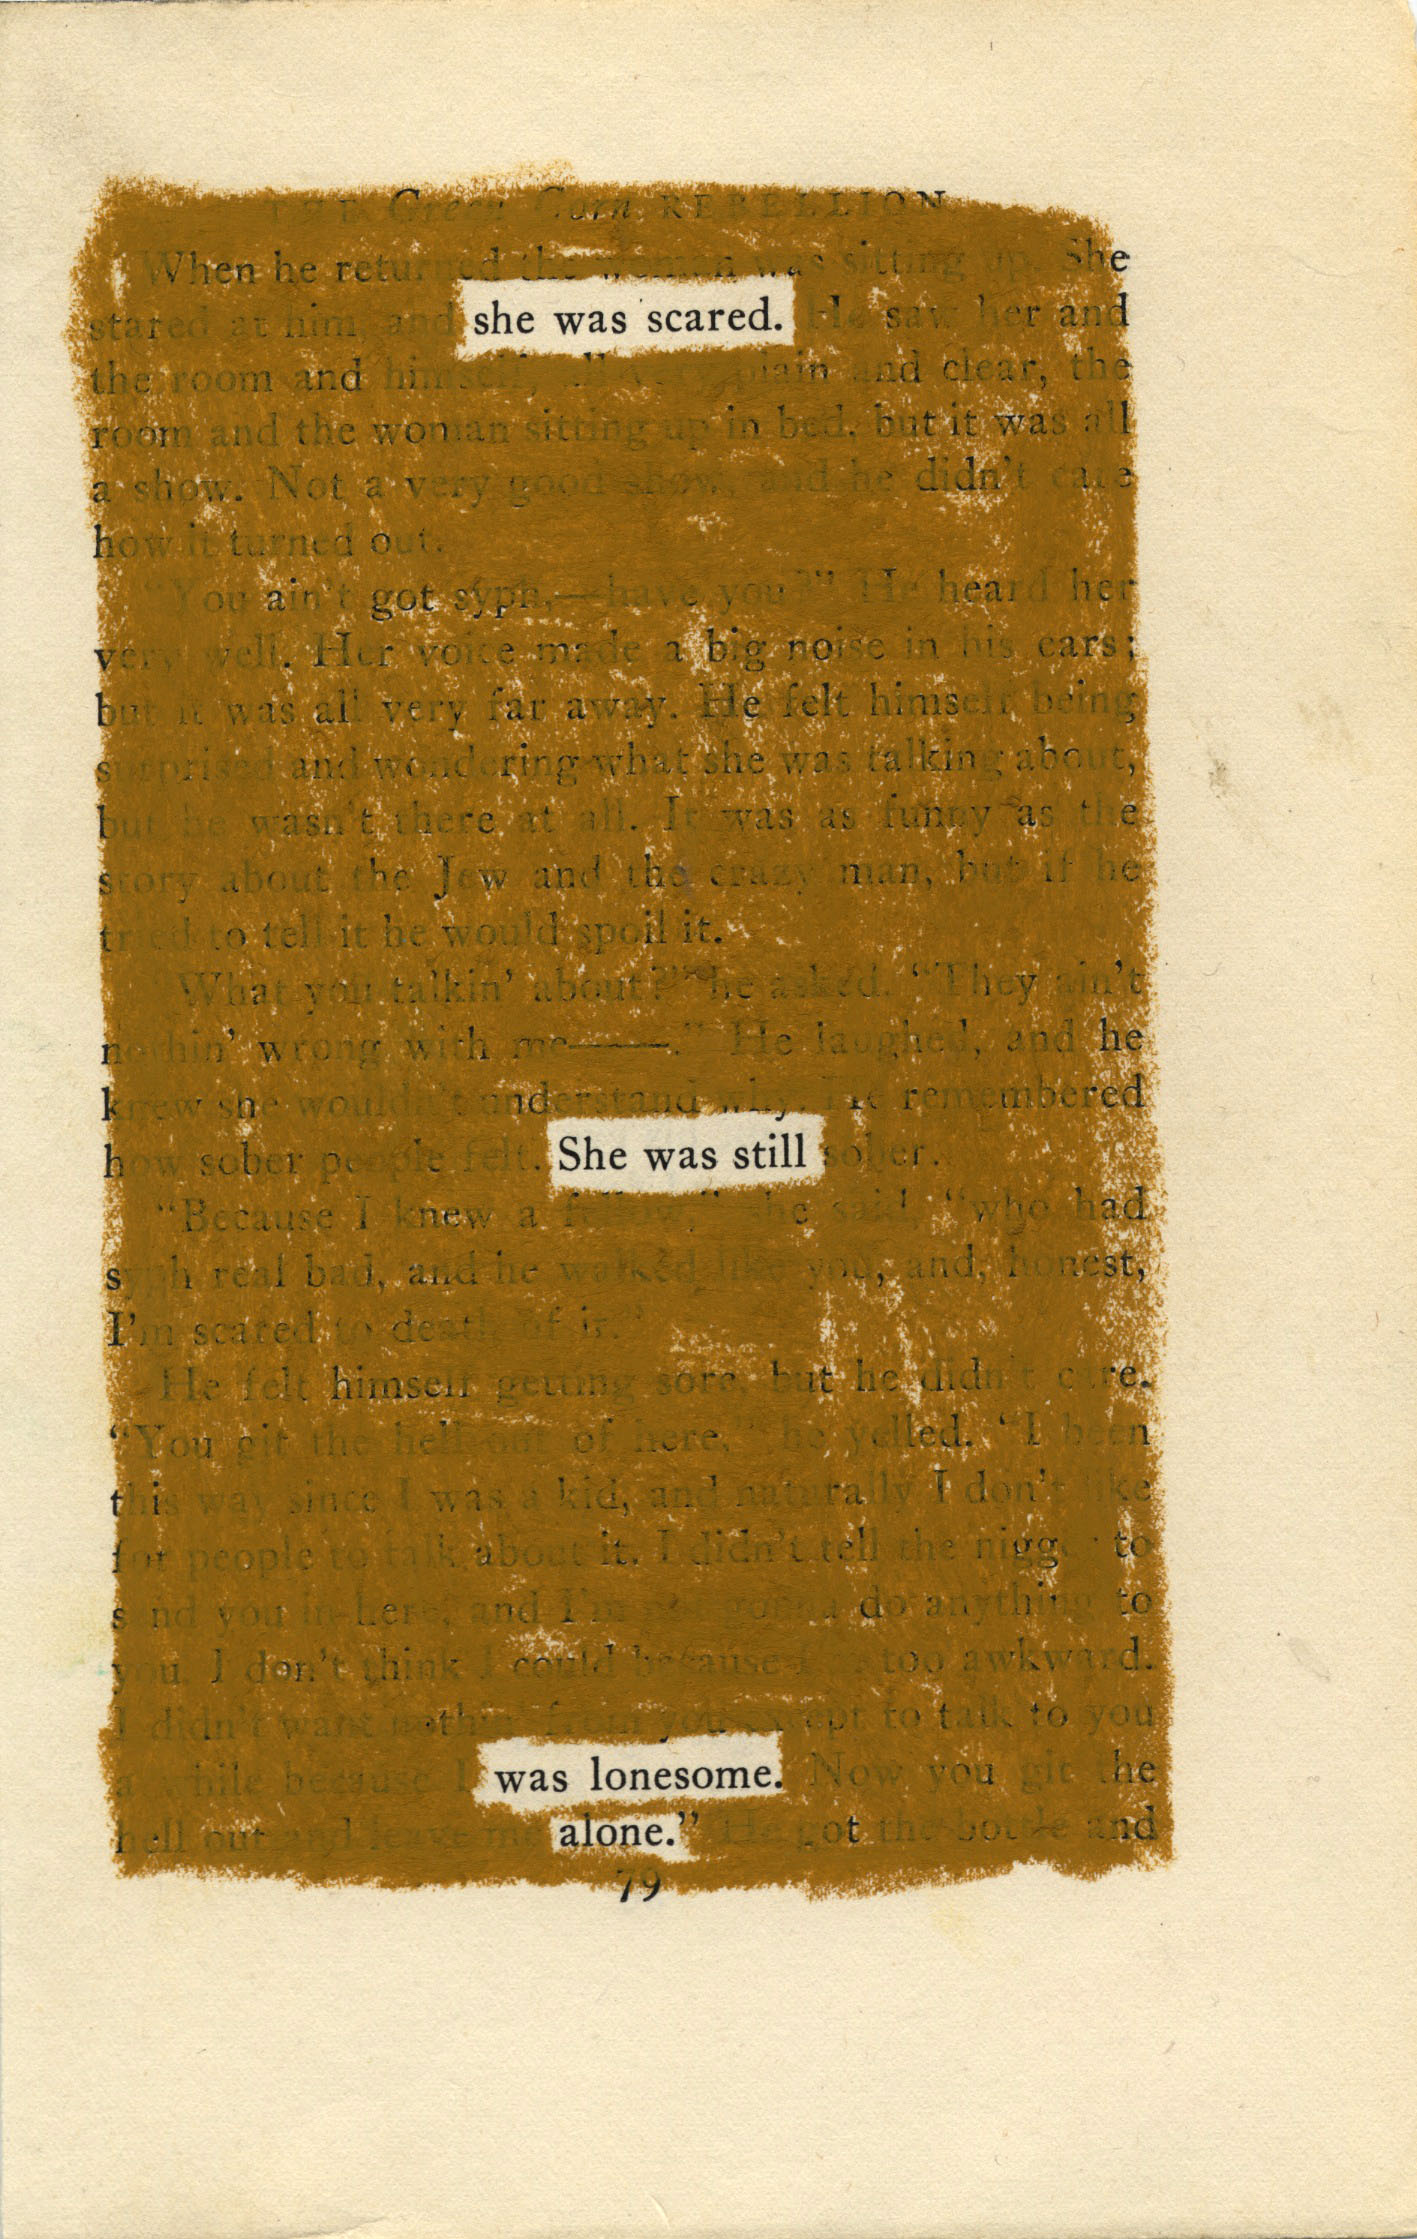 THE Green Corn REBELLION
When he returned the woman was sitting up. She
stared at him, and she was scared. He saw her and
the room and himself, all very plain and clear, the
room and the woman sitting up in bed, but it was all
a show. Not a very good show, and he didn't care
how it turned out.
"You ain't got syph,—have you?" He heard her
very well. Her voice made a big noise in his ears;
but it was all very far away. He felt himself being
surprised and wondering what she was talking about,
but he wasn't there at all. It was as funny as the
story about the Jew and the crazy man, but if he
tried to tell it he would spoil it.
"What you talkin' about?" he asked. "They ain't
nothin' wrong with me——." He laughed, and he
knew she wouldn't understand why. He remembered
how sober people felt. She was still sober.
"Because I knew a fellow," she said, "who had
syph real bad, and he walked like you, and, honest,
I'm scared to death of it."
He felt himself getting sore, but he didn't care.
"You git the hell out of here," he yelled. "I been
this way since I was a kid, and naturally I don't like
for people to talk about it. I didn't tell the nigger to
send you in here, and I'm not gonna do anything to
you. I don't think I could because I'm too awkward.
I didn't want nothin' from you except to talk to you
a while because I was lonesome. Now you git the
hell out and leave me alone." He got the bottle and
79